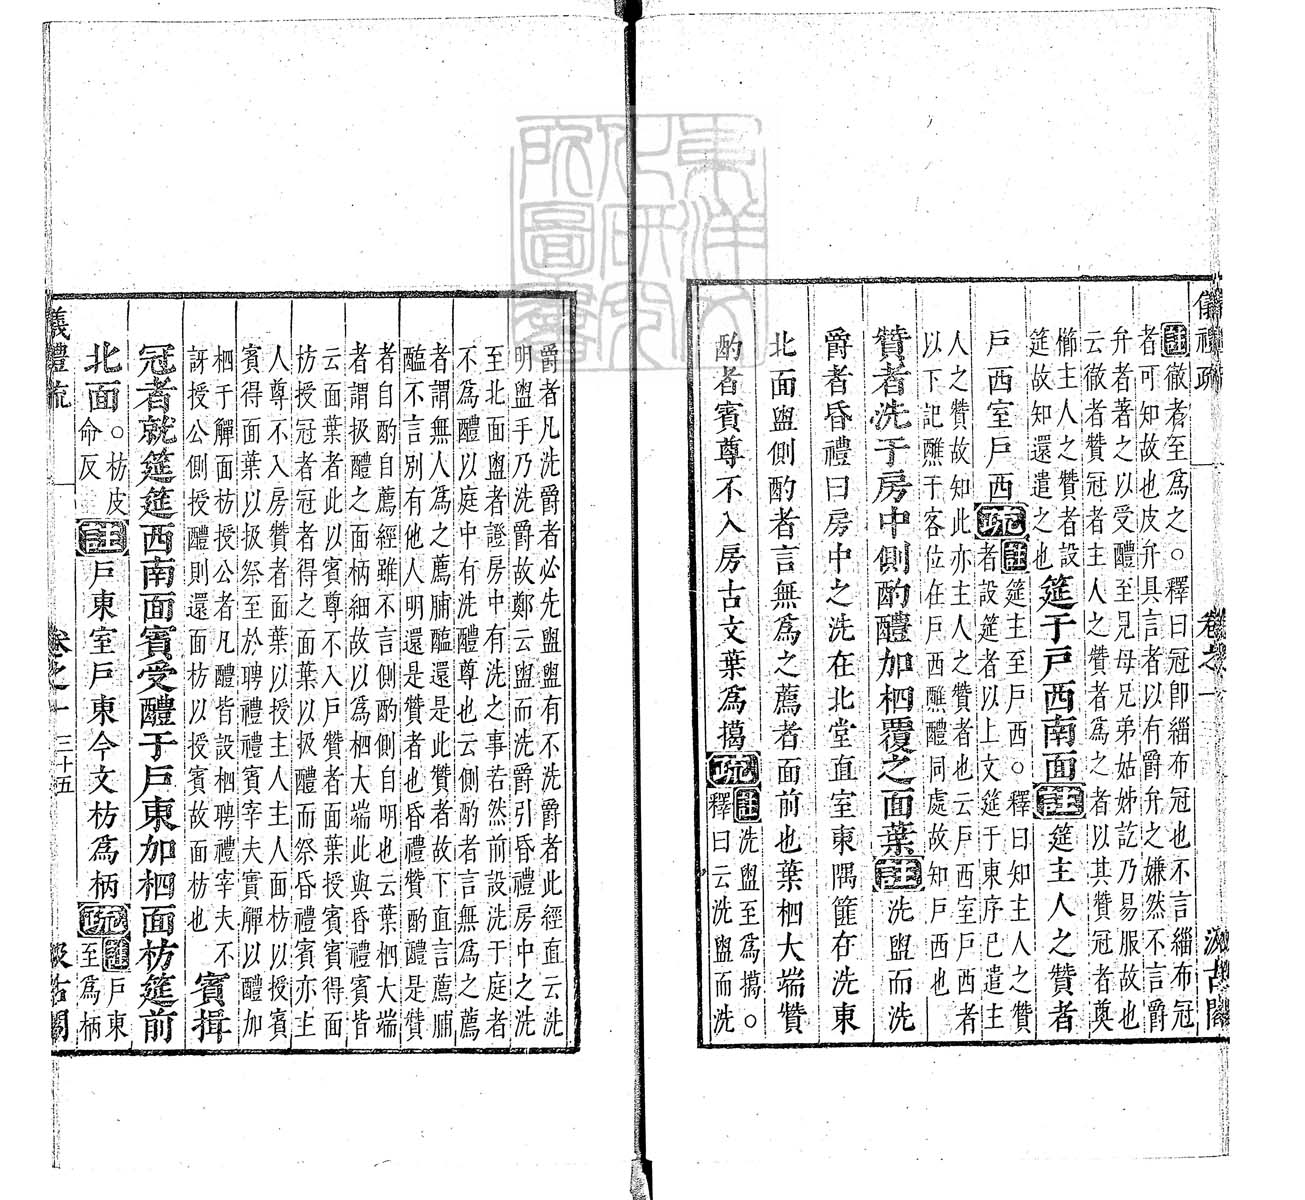 儀禮疏　卷之一　汲古閣
註徹者至爲之○釋曰冠卽緇布冠也不言緇布冠
者可知故也皮弁具言者以有爵弁之嫌然不言爵
弁者著之以受醴至見母兄弟姑姊訖乃易服故也
云徹者贊冠者主人之贊者爲之者以其贊冠者奠
櫛主人之贊者設
筵故知還遣之也
筵于戶西南面註筵主人之贊者
戶西室戶西疏
註筵主至戶西○釋曰知主人之贊
者設筵者以上文筵于東序已遣主
人之贊故知此亦主人之贊者也云戶西室戶西者
以下記醮于客位在戶西醮醴同處故知戶西也
贊者洗于房中側酌醴加柶覆之面葉註洗盥而洗
爵者昏禮曰房中之洗在北堂直室東隅篚在洗東
北面盥側酌者言無爲之薦者面前也葉柶大端贊
酌者賓尊不入房古文葉爲擖疏
註洗盥至爲擖○
釋曰云洗盥而洗
爵者凡洗爵者必先盥盥有不洗爵者此經直云洗
明盥手乃洗爵故鄭云盥而洗爵引昏禮房中之洗
至北面盥者證房中有洗之事若然前設洗于庭者
不爲醴以庭中有洗醴尊也云側酌者言無爲之薦
者謂無人爲之薦脯醢還是此贊者故下直言薦脯
醢不言別有他人明還是贊者也昏禮贊酌醴是贊
者自酌自薦經雖不言側酌側自明也云葉柶大端
者謂扱醴之面柄細故以爲柶大端此與昏禮賓皆
云面葉者此以賓尊不入戶贊者面葉授賓賓得面
枋授冠者冠者得之面葉以扱醴而祭昏禮賓亦主
人尊不入房贊者面葉以授主人主人面枋以授賓
賓得面葉以扱祭至於聘禮禮賓宰夫實觶以醴加
柶于觶面枋授公者凡醴皆設柶聘禮宰夫不
訝授公側授醴則還面枋以授賓故面枋也
賓揖
冠者就筵筵西南面賓受醴于戶東加柶面枋筵前
北面○枋皮
命反
註戶東室戶東今文枋爲柄疏
註戶東
至爲柄
儀禮疏　卷之一　三十五　汲古閣